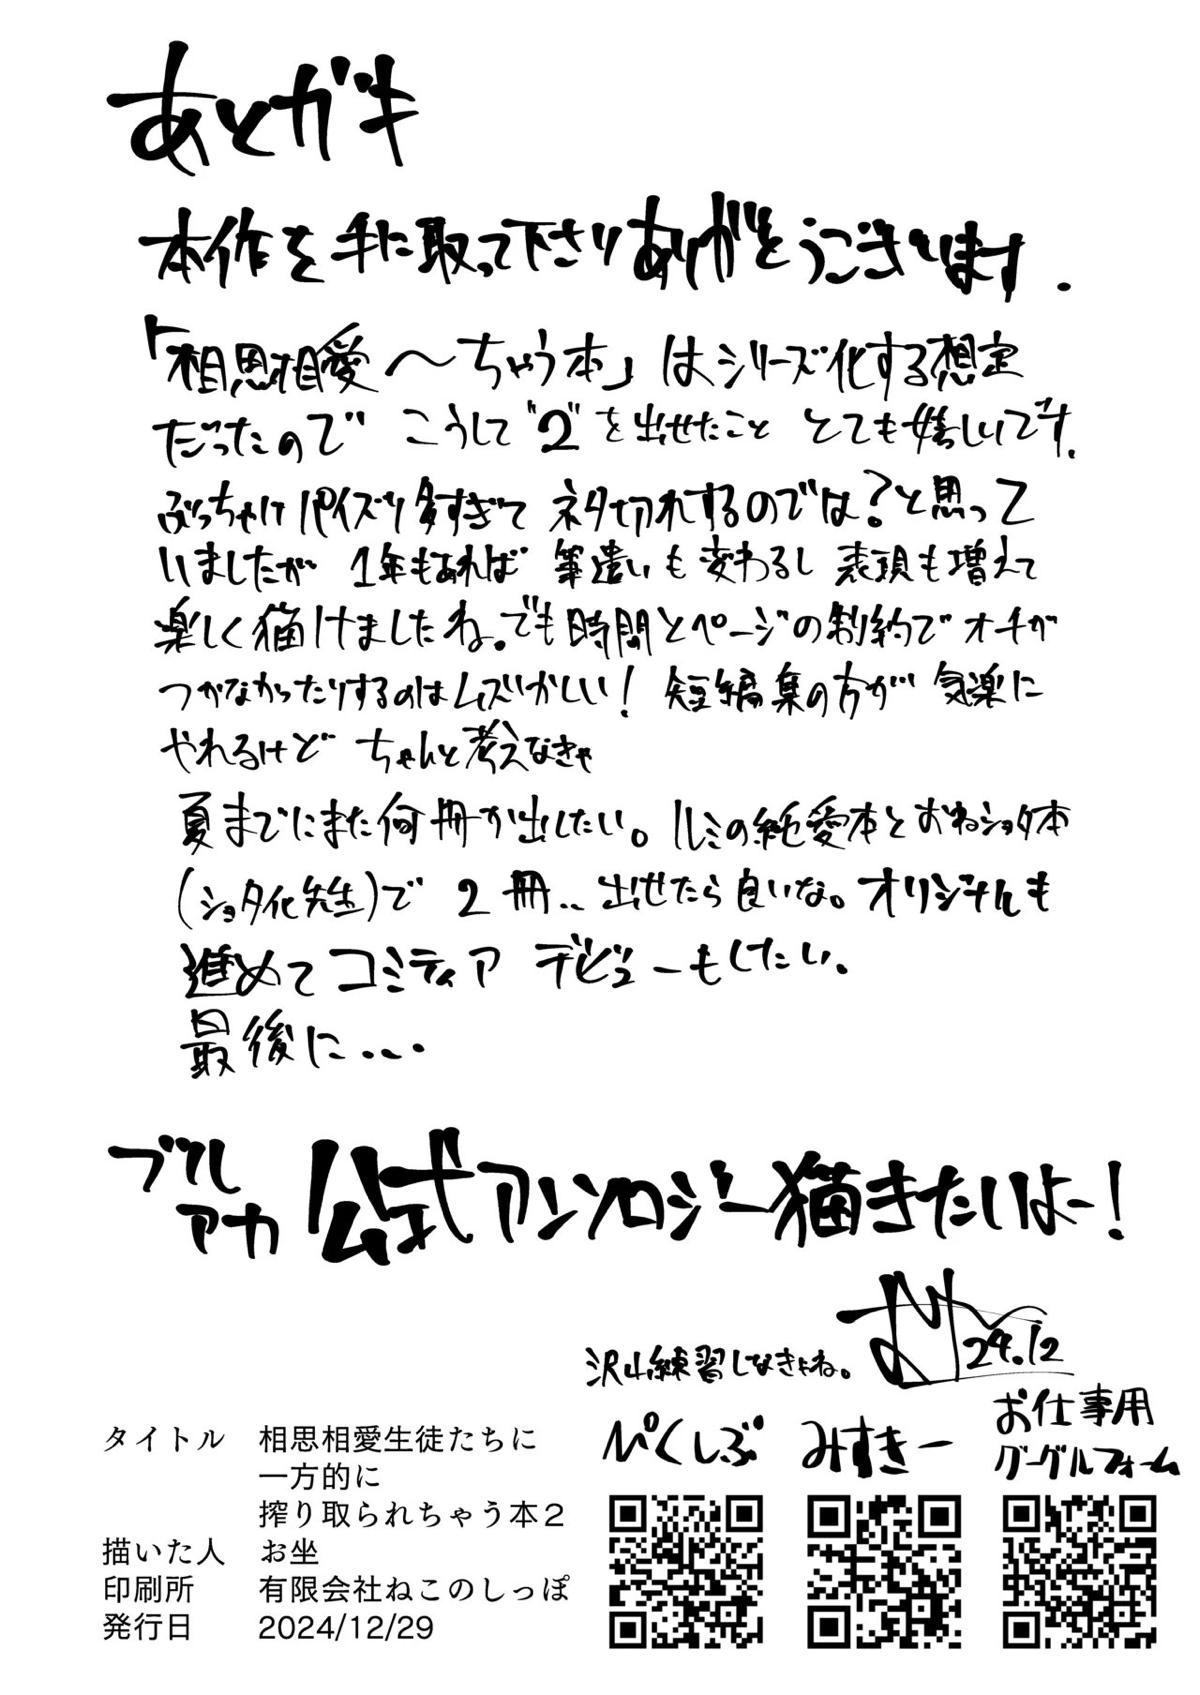 あとガキ
本作を手に取って下さりありがとうございます.
「相思相愛〜ちゃう本」はシリーズ化する想定
だったので こうして"2"を出せたこと とても嬉しいです.
ぶっちゃけパイズリ多すぎて ネタ切れするのでは?と思って
いましたが 1年もあれば 筆遣いも変わるし 表現も増えて
楽しく描けましたね。でも時間とページの制約でオチが
つかなかったりするのはムズかしい! 短編集の方が気楽に
やれるけど ちゃんと考えなきゃ
夏までにまた何冊か出したい。ルミの純愛本とおねショタ本
(ショタ化先生)で 2冊‥出せたら良いな。オリジナルも
進めてコミティア デビューもしたい。
最後に‥‥
ブルアカ公式アンソロジー描きたいよー!
沢山練習しなきゃね。
24.12
タイトル 相思相愛生徒たちに
一方的に
搾り取られちゃう本2
描いた人 お坐
印刷所 有限会社ねこのしっぽ
発行日 2024/12/29
ぴくしぶ
みすきー
お仕事用
グーグルフォーム